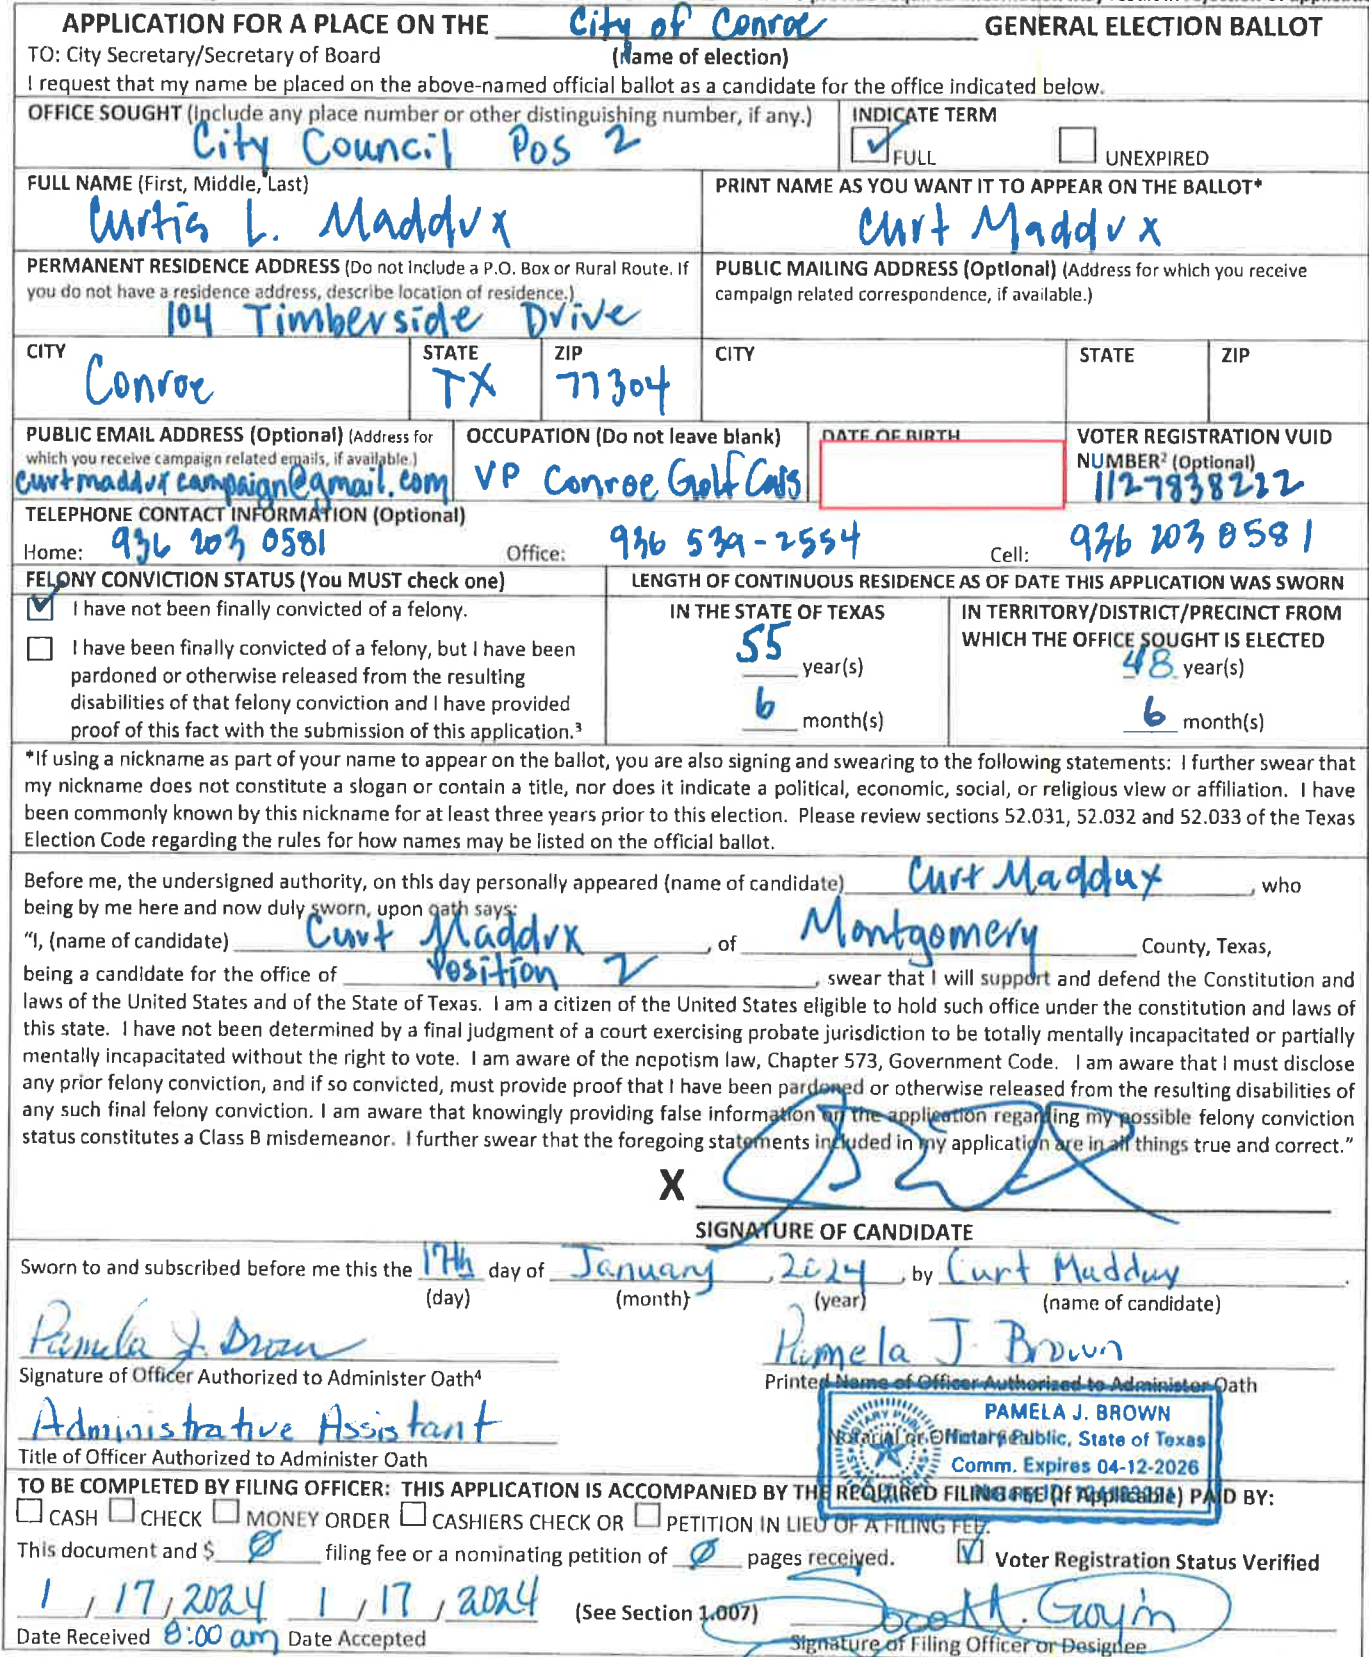 APPLICATION FOR A PLACE ON THE City of Conroe GENERAL ELECTION BALLOT
TO: City Secretary/Secretary of Board (Name of election)
I request that my name be placed on the above-named official ballot as a candidate for the office indicated below.
OFFICE SOUGHT (Include any place number or other distinguishing number, if any.) INDICATE TERM
City Council Pos 2 FULL UNEXPIRED
FULL NAME (First, Middle, Last) PRINT NAME AS YOU WANT IT TO APPEAR ON THE BALLOT*
Curtis L. Maddux Curt Maddux
PERMANENT RESIDENCE ADDRESS (Do not include a P.O. Box or Rural Route. If PUBLIC MAILING ADDRESS (Optional) (Address for which you receive
you do not have a residence address, describe location of residence.) campaign related correspondence, if available.)
104 Timberside Drive
CITY STATE ZIP CITY STATE ZIP
Conroe TX 77304
PUBLIC EMAIL ADDRESS (Optional) (Address for OCCUPATION (Do not leave blank) DATE OF BIRTH VOTER REGISTRATION VUID
which you receive campaign related emails, if available.) NUMBER² (Optional)
curtmadduxcampaign@gmail.com VP Conroe Golf Cars 1127838222
TELEPHONE CONTACT INFORMATION (Optional)
Home: 936 203 0581 Office: 936 539-2554 Cell: 936 203 0581
FELONY CONVICTION STATUS (You MUST check one) LENGTH OF CONTINUOUS RESIDENCE AS OF DATE THIS APPLICATION WAS SWORN
I have not been finally convicted of a felony. IN THE STATE OF TEXAS IN TERRITORY/DISTRICT/PRECINCT FROM
WHICH THE OFFICE SOUGHT IS ELECTED
I have been finally convicted of a felony, but I have been
pardoned or otherwise released from the resulting 55 year(s) 48 year(s)
disabilities of that felony conviction and I have provided
proof of this fact with the submission of this application.³ 6 month(s) 6 month(s)
*If using a nickname as part of your name to appear on the ballot, you are also signing and swearing to the following statements: I further swear that
my nickname does not constitute a slogan or contain a title, nor does it indicate a political, economic, social, or religious view or affiliation. I have
been commonly known by this nickname for at least three years prior to this election. Please review sections 52.031, 52.032 and 52.033 of the Texas
Election Code regarding the rules for how names may be listed on the official ballot.
Before me, the undersigned authority, on this day personally appeared (name of candidate) Curt Maddux, who
being by me here and now duly sworn, upon oath says:
"I, (name of candidate) Curt Maddux, of Montgomery County, Texas,
being a candidate for the office of Position 2, swear that I will support and defend the Constitution and
laws of the United States and of the State of Texas. I am a citizen of the United States eligible to hold such office under the constitution and laws of
this state. I have not been determined by a final judgment of a court exercising probate jurisdiction to be totally mentally incapacitated or partially
mentally incapacitated without the right to vote. I am aware of the nepotism law, Chapter 573, Government Code. I am aware that I must disclose
any prior felony conviction, and if so convicted, must provide proof that I have been pardoned or otherwise released from the resulting disabilities of
any such final felony conviction. I am aware that knowingly providing false information on the application regarding my possible felony conviction
status constitutes a Class B misdemeanor. I further swear that the foregoing statements included in my application are in all things true and correct."
X
SIGNATURE OF CANDIDATE
Sworn to and subscribed before me this the 17th day of January, 2024, by Curt Maddux.
(day) (month) (year) (name of candidate)
Pamela J. Brown Pamela J. Brown
Signature of Officer Authorized to Administer Oath⁴ Printed Name of Officer Authorized to Administer Oath
Administrative Assistant
Title of Officer Authorized to Administer Oath
PAMELA J. BROWN
Notary Public, State of Texas
Comm. Expires 04-12-2026
TO BE COMPLETED BY FILING OFFICER: THIS APPLICATION IS ACCOMPANIED BY THE REQUIRED FILING FEE (If Applicable) PAID BY:
CASH CHECK MONEY ORDER CASHIERS CHECK OR PETITION IN LIEU OF A FILING FEE.
This document and $ 0 filing fee or a nominating petition of 0 pages received. Voter Registration Status Verified
1 / 17 / 2024 1 / 17 / 2024 (See Section 1.007)
Date Received 8:00 am Date Accepted Signature of Filing Officer or Designee